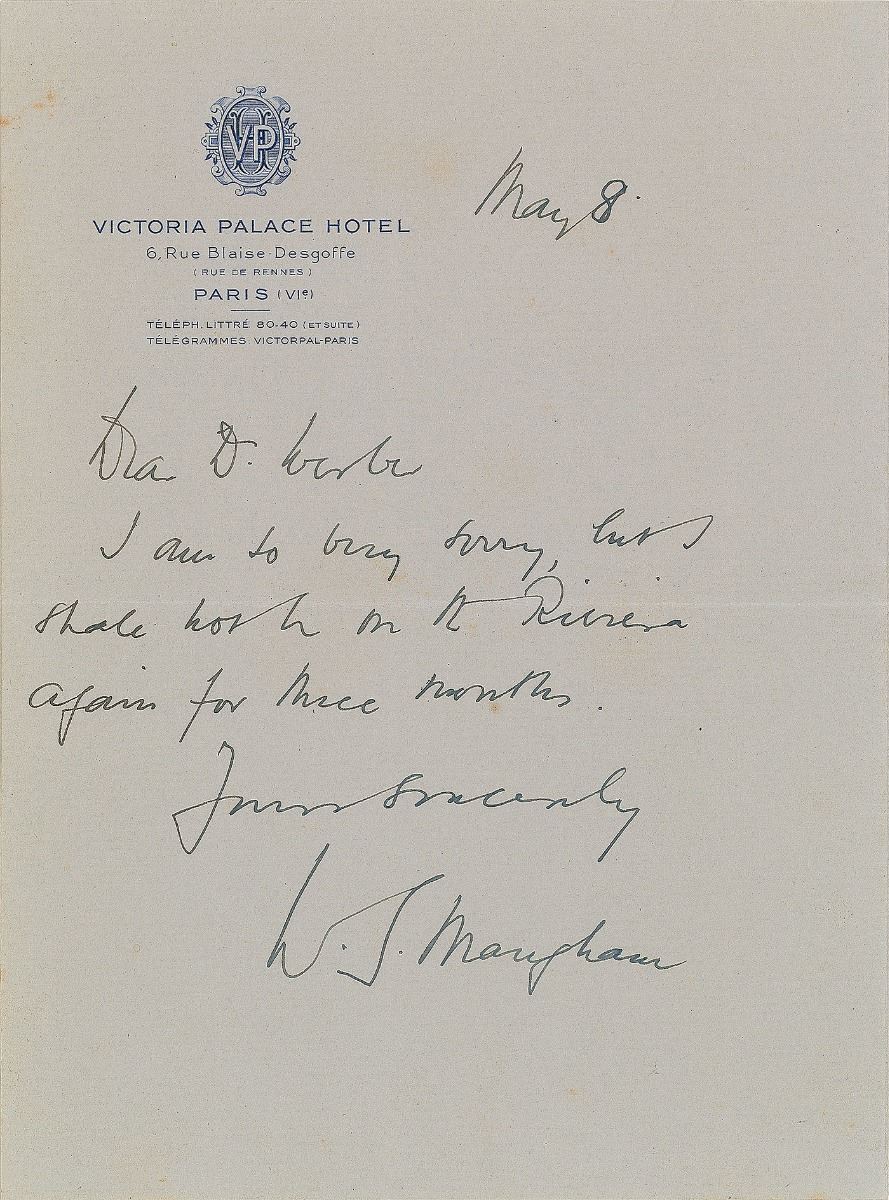 VP
VICTORIA PALACE HOTEL
6, Rue Blaise-Desgoffe
(RUE DE RENNES)
PARIS (VIe)
TÉLÉPH. LITTRÉ 80-40 (ET SUITE)
TÉLÉGRAMMES: VICTORPAL-PARIS
May 8.
Dear D.
I am so very sorry, but I
shall not be on the Riviera
again for three months.
Yours sincerely
W. S. Maugham